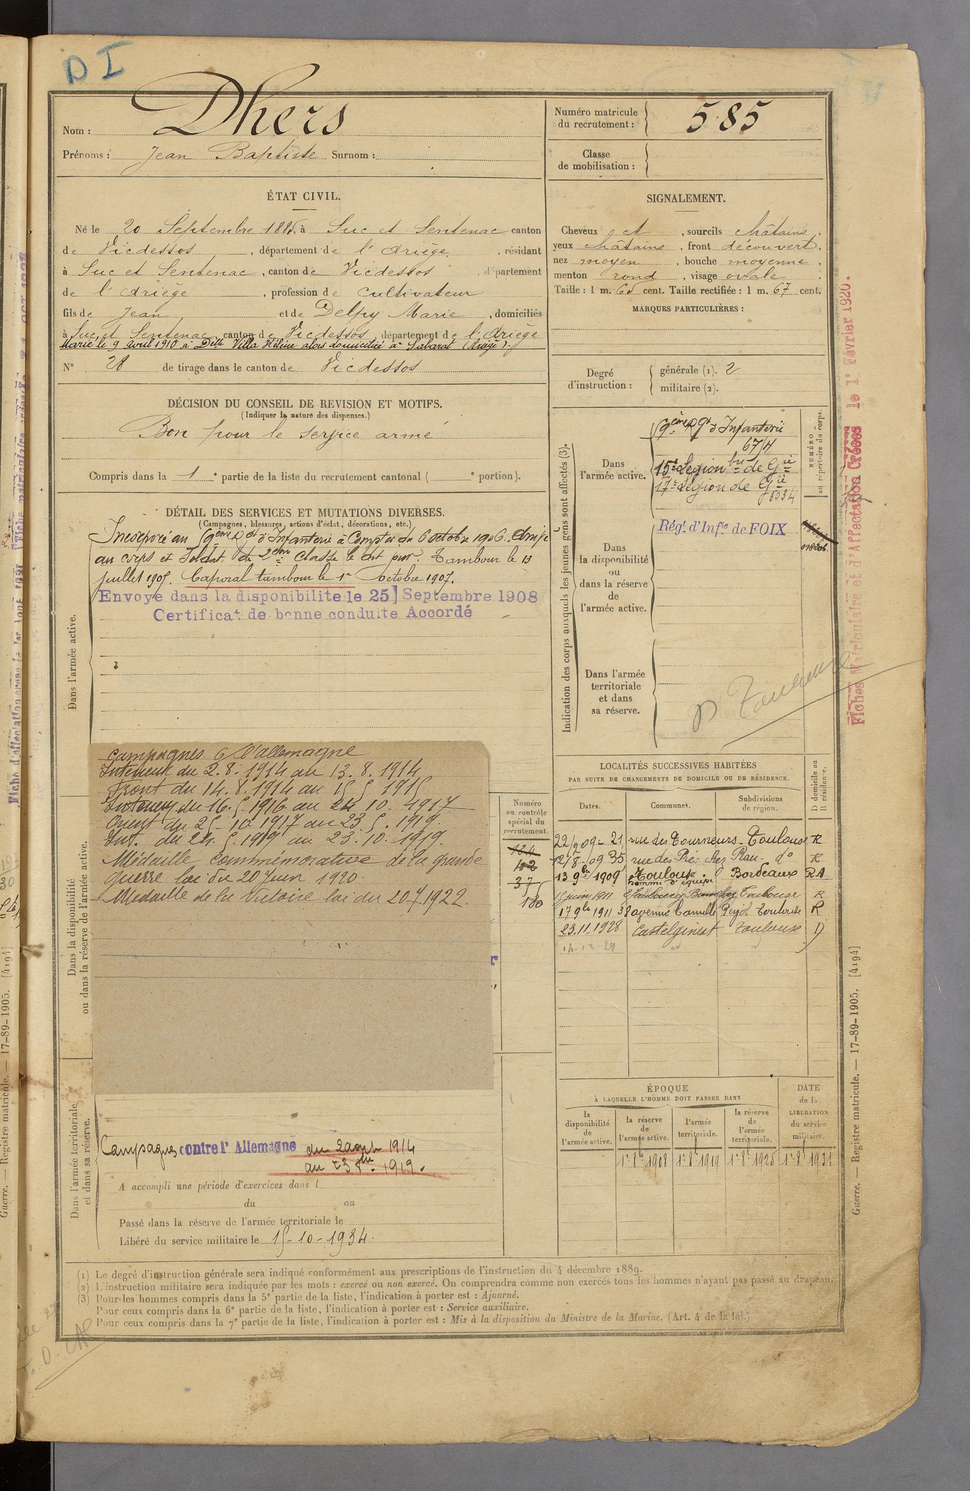 D I
Nom : Dhers
Prénoms : Jean Baptiste Surnom :
Numéro matricule
du recrutement : 585
Classe
de mobilisation :
ÉTAT CIVIL.
Né le 20 Septembre 1885 à Suc et Sentenac canton
de Vicdessos, département de l'Ariège, résidant
à Suc et Sentenac, canton de Vicdessos, département
de l'Ariège, profession de cultivateur
fils de Jean et de Delpy Marie, domiciliés
à Suc et Sentenac, canton de Vicdessos, département de l'Ariège
Marié le 9 avril 1910 à Dlle Villa Hélène alors domiciliée à Sabarat (Ariège).
N° 28 de tirage dans le canton de Vicdessos
SIGNALEMENT.
Cheveux et, sourcils châtains
yeux châtains, front découvert,
nez moyen, bouche moyenne,
menton rond, visage ovale
Taille : 1 m. 65 cent. Taille rectifiée : 1 m. 67 cent.
MARQUES PARTICULIÈRES :
Degré
d'instruction :
générale (1). 2
militaire (2).
DÉCISION DU CONSEIL DE REVISION ET MOTIFS.
(Indiquer la nature des dispenses.)
Bon pour le service armé
Compris dans la 1e partie de la liste du recrutement cantonal ( e portion).
DÉTAIL DES SERVICES ET MUTATIONS DIVERSES.
(Campagnes, blessures, actions d'éclat, décorations, etc.)
Incorporé au 59ème Rgt d'Infanterie à compter du 6 octobre 1906. Arrivé
au corps et Soldat de 2ème classe le dit jour Tambour le 13
juillet 1907. Caporal tambour le 1er Octobre 1907.
Envoyé dans la disponibilite le 25 Septembre 1908
Certificat de bonne conduite Accordé
Dans l'armée active.
Indication des corps auxquels les jeunes gens sont affectés (3).
Dans
l'armée active.
59ème Rgt d'Infanterie
15e Légion
17e Légion de
NUMÉRO
au répertoire du corps.
Dans
la disponibilité
ou
dans la réserve
de
l'armée active.
Régt d'Infie de FOIX
Dans l'armée
territoriale
et dans
sa réserve.
Toulouse
Fiches Matriculaire et d'Affectation Créées le 1r Février 1920.
Campagnes C l'allemagne
Intérieur du 2.8.1914 au 13.8.1914
Front du 14.8.1914 au 15.5.1916
Intérieur du 16.5.1916 au 24.10.1917
Orient du 25-10.1917 au 23.5.1919.
Int. du 24.5.1919 au 23.10.1919.
Médaille Commémorative de la grande
guerre loi du 20 Juin 1920.
Médaille de la Victoire loi du 20.7.1922.
Dans la disponibilité
ou dans la réserve de l'armée active.
Numéro
au contrôle
spécial du
recrutement.
37
180
LOCALITÉS SUCCESSIVES HABITÉES
PAR SUITE DE CHANGEMENTS DE DOMICILE OU DE RÉSIDENCE.
Dates. Communes. Subdivisions
de région.
D domicile ou
R résidence.
21 rue des Tourneurs Toulouse R
35 rue des R
13 9bre 1909 Toulouse Bordeaux RA
17 9bre 1911 38 avenue Camille Pujol Toulouse R
23.11.1928 Castelginest Toulouse D
ÉPOQUE
À LAQUELLE L'HOMME DOIT PASSER DANS
la
disponibilité
de
l'armée active.
la réserve
de
l'armée active.
l'armée
territoriale.
la réserve
de
l'armée
territoriale.
DATE
de la
LIBÉRATION
du service
militaire.
Dans l'armée territoriale
et dans sa réserve.
Campagnes contre l'Allemagne du 2 août 1914
au 23 1919.
A accompli une période d'exercices dans l
du au
Passé dans la réserve de l'armée territoriale le
Libéré du service militaire le 15-10-1934.
(1) Le degré d'instruction générale sera indiqué conformément aux prescriptions de l'instruction du 4 décembre 1889.
(2) L'instruction militaire sera indiquée par les mots : exercé ou non exercé. On comprendra comme non exercés tous les hommes n'ayant pas passé au drapeau.
(3) Pour les hommes compris dans la 5e partie de la liste, l'indication à porter est : Ajourné.
Pour ceux compris dans la 6e partie de la liste, l'indication à porter est : Service auxiliaire.
Pour ceux compris dans la 7e partie de la liste, l'indication à porter est : Mis à la disposition du Ministre de la Marine. (Art. 4 de la loi.)
Guerre. — Registre matricule. — 17-89-1905. [4194]